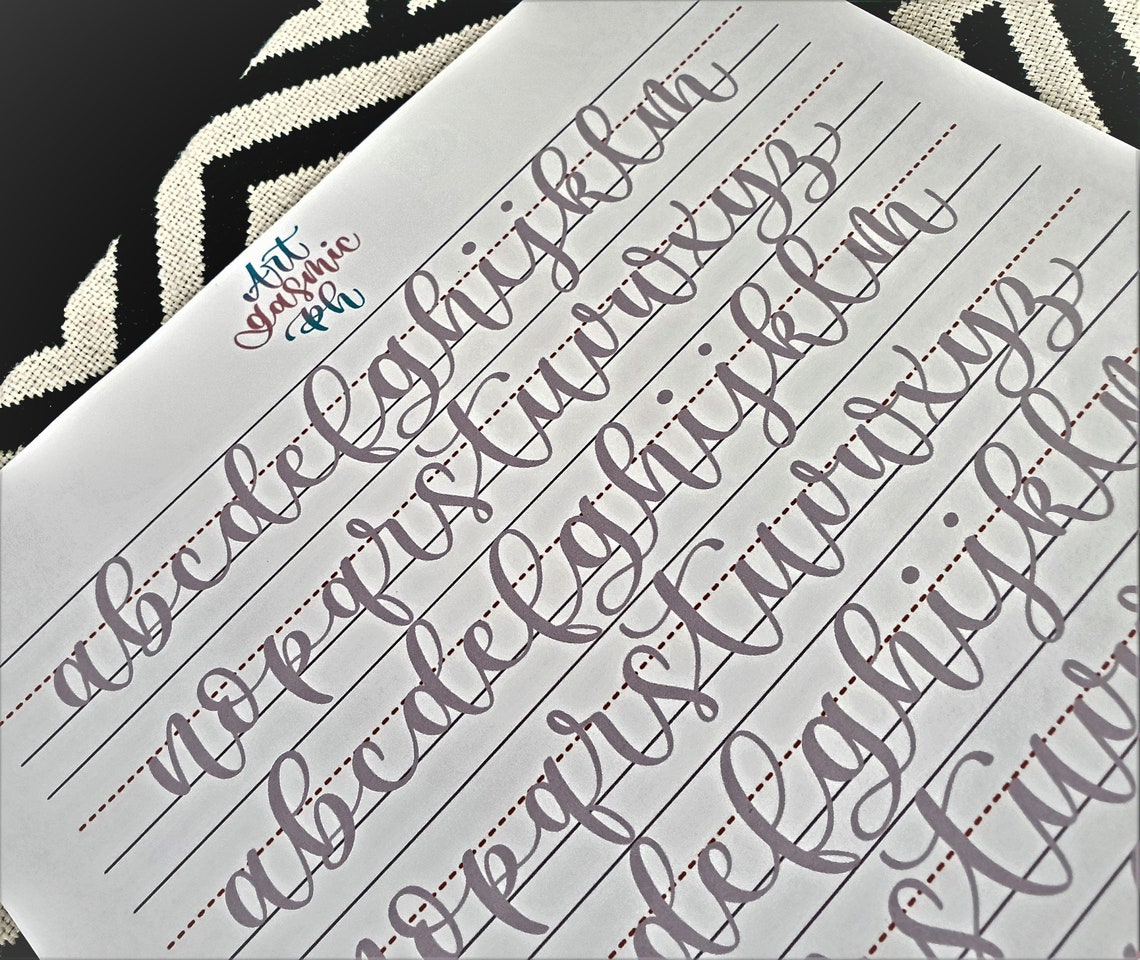 Art
gasmic
ph
abcdefghijklm
nopqrstuvwxyz
abcdefghijklm
nopqrstuvwxyz
defghijklm
stu